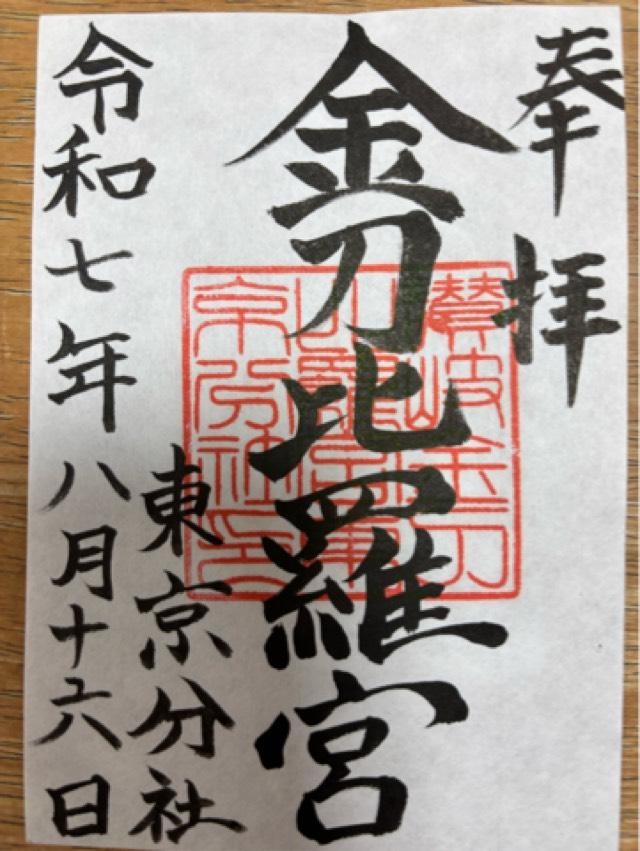 奉拝
金刀比羅宮
讃岐金刀比羅宮東京分社印
東京分社
令和七年八月十六日